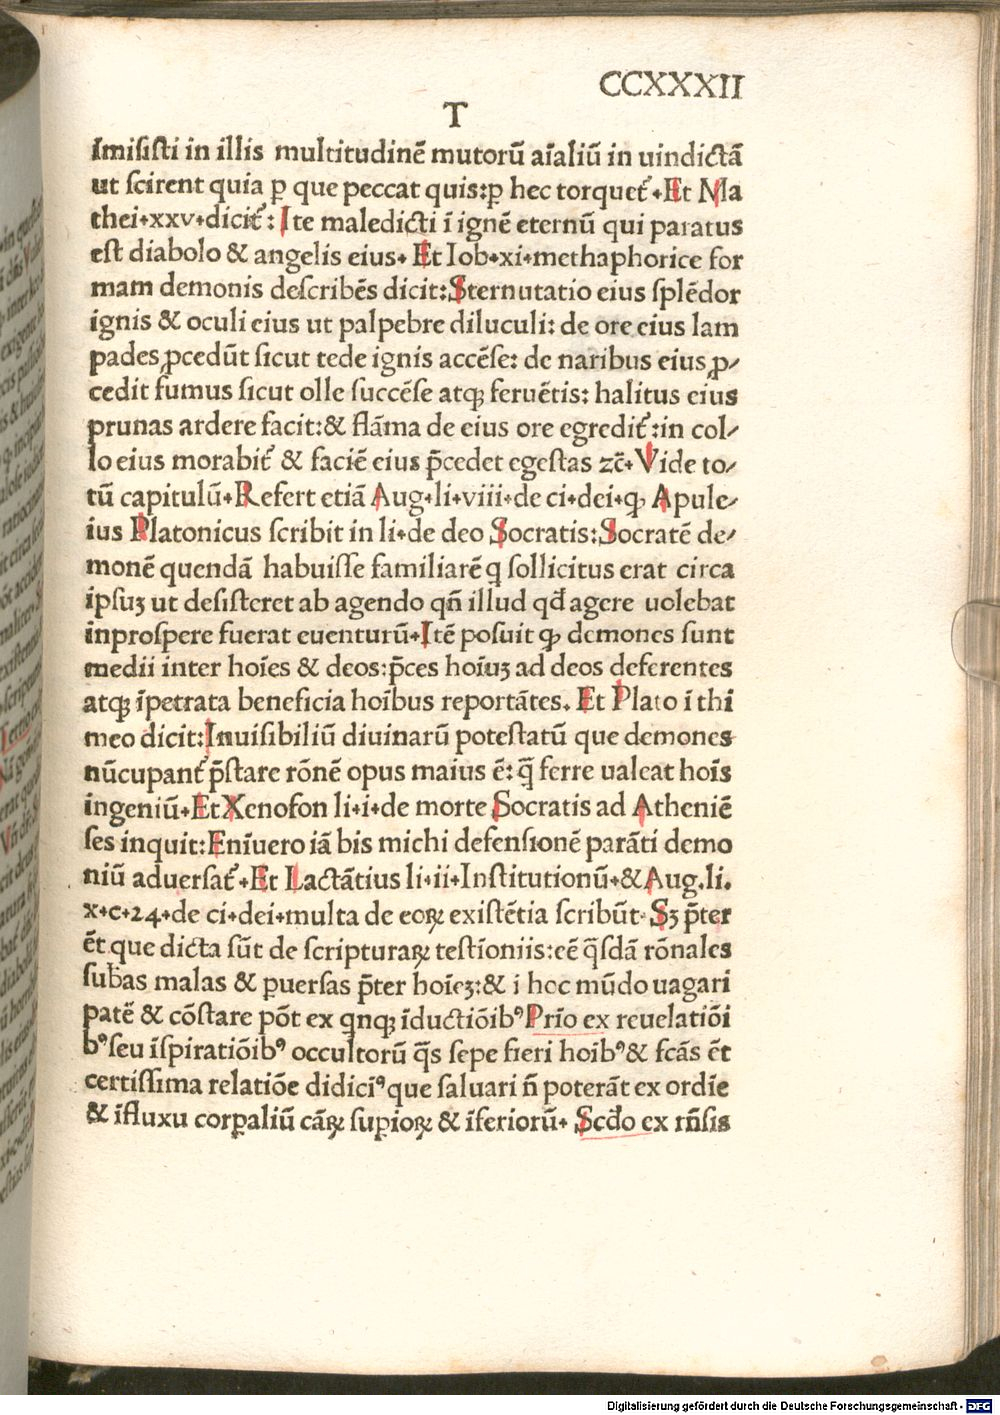 CCXXXII
T
Imisisti in illis multitudinē mutorū aīaliū in uindictā
ut scirent quia ꝑ que peccat quis:ꝑ hec torquet᷑. Et Ma
thei.xxv.dicit᷑: Ite maledicti ī ignē eternū qui paratus
est diabolo & angelis eius. Et Iob.xi.methaphorice for
mam demonis describēs dicit:Sternutatio eius splēdor
ignis & oculi eius ut palpebre diluculi: de ore eius lam
pades ꝓcedūt sicut tede ignis accēse: de naribus eius ꝓ/
cedit fumus sicut olle succēse atqꝫ feruētis: halitus eius
prunas ardere facit:& flāma de eius ore egredit᷑:in col/
lo eius morabit᷑ & faciē eius p̄cedet egestas ⁊c̄. Vide to/
tū capitulū.Refert etiā Aug.li.viii.de ci.dei.ꝙ Apule/
ius Platonicus scribit in li.de deo Socratis:Socratē de/
monē quendā habuisse familiarē q sollicitus erat circa
ipsuꝫ ut desisteret ab agendo qn̄ illud qđ agere uolebat
inprospere fuerat euenturū.Itē posuit ꝙ demones sunt
medii inter hoīes & deos:p̄ces hoīuꝫ ad deos deferentes
atqꝫ īpetrata beneficia hoībus reportātes. Et Plato ī thi
meo dicit:Inuisibiliū diuinarū potestatū que demones
nūcupant᷑ p̄stare rōnē opus maius ē: q̄ ferre ualeat hoīs
ingeniū.Et Xenofon li.i.de morte Socratis ad Atheniē
ses inquit:Enīuero iā bis michi defensionē parāti demo
niū aduersat᷑.Et Lactātius li.ii.Institutionū.& Aug.li.
x.c.24.de ci.dei.multa de eoꝝ existētia scribūt.Sꝫ p̄ter
ēt que dicta sūt de scripturaꝝ testīoniis:eē q̄sdā rōnales
sub̄as malas & ꝑuersas p̄ter hoīeꝫ:& i hoc mūdo uagari
patē & cōstare pōt ex qnqꝫ īductiōibꝰ Prīo ex reuelatiōi
bꝰ seu īspiratiōibꝰ occultorū q̄s sepe fieri hoibꝰ & fcās ēt
certissima relatiōe didiciꝰ que saluari n̄ poterāt ex ordīe
& īfluxu corꝑaliū cāꝝ suꝑioꝝ & īferiorū. Scđo ex rn̄sis
Digitalisierung gefördert durch die Deutsche Forschungsgemeinschaft - DFG